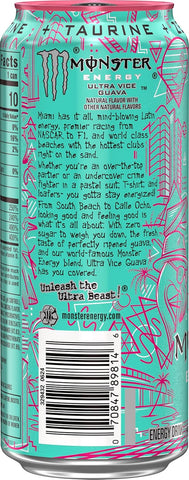 VE + TAURINE +
MONSTER
ENERGY
ULTRA VICE
GUAVA
NATURAL FLAVOR WITH
OTHER NATURAL FLAVORS
Facts
1 can
10
Miami has it all, mind-blowing Latin
energy, premier racing from
NASCAR to F1, and world class
beaches with the hottest clubs
right on the sand.
Whether you're an over-the-top
partier or an undercover crime
fighter in a pastel suit, T-shirt and
loafers- you gotta stay energized!
From South Beach to Calle Ocho,
looking good and feeling good is
what it's all about. With zero
sugar to weigh you down, the fresh
taste of perfectly ripened guava,
and our world-famous Monster
Energy blend. Ultra Vice Guava
has you covered.
Unleash the
Ultra Beast!®
monsterenergy.com®
329410 0624
0 70847 89814 6
M
ENERGY DRIN